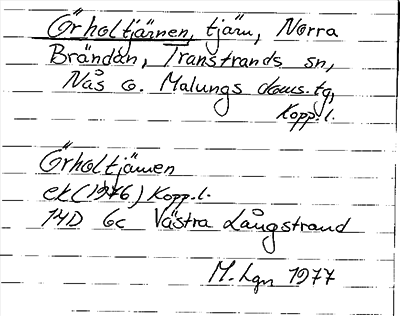 Örholtjärnen, tjärn, Norra
Brändån, Transtrands sn,
Nås o. Malungs doms.tg,
Kopp.l.
Örholtjärnen
ek (1976) Kopp.l.
14D 6c Västra Långstrand
M. Lgn 1977